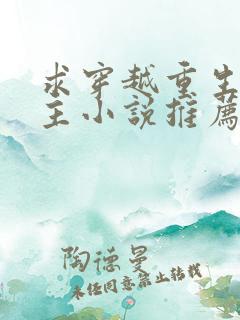 求穿越重生
主小說推薦
陶德曼
未经同意禁止转载